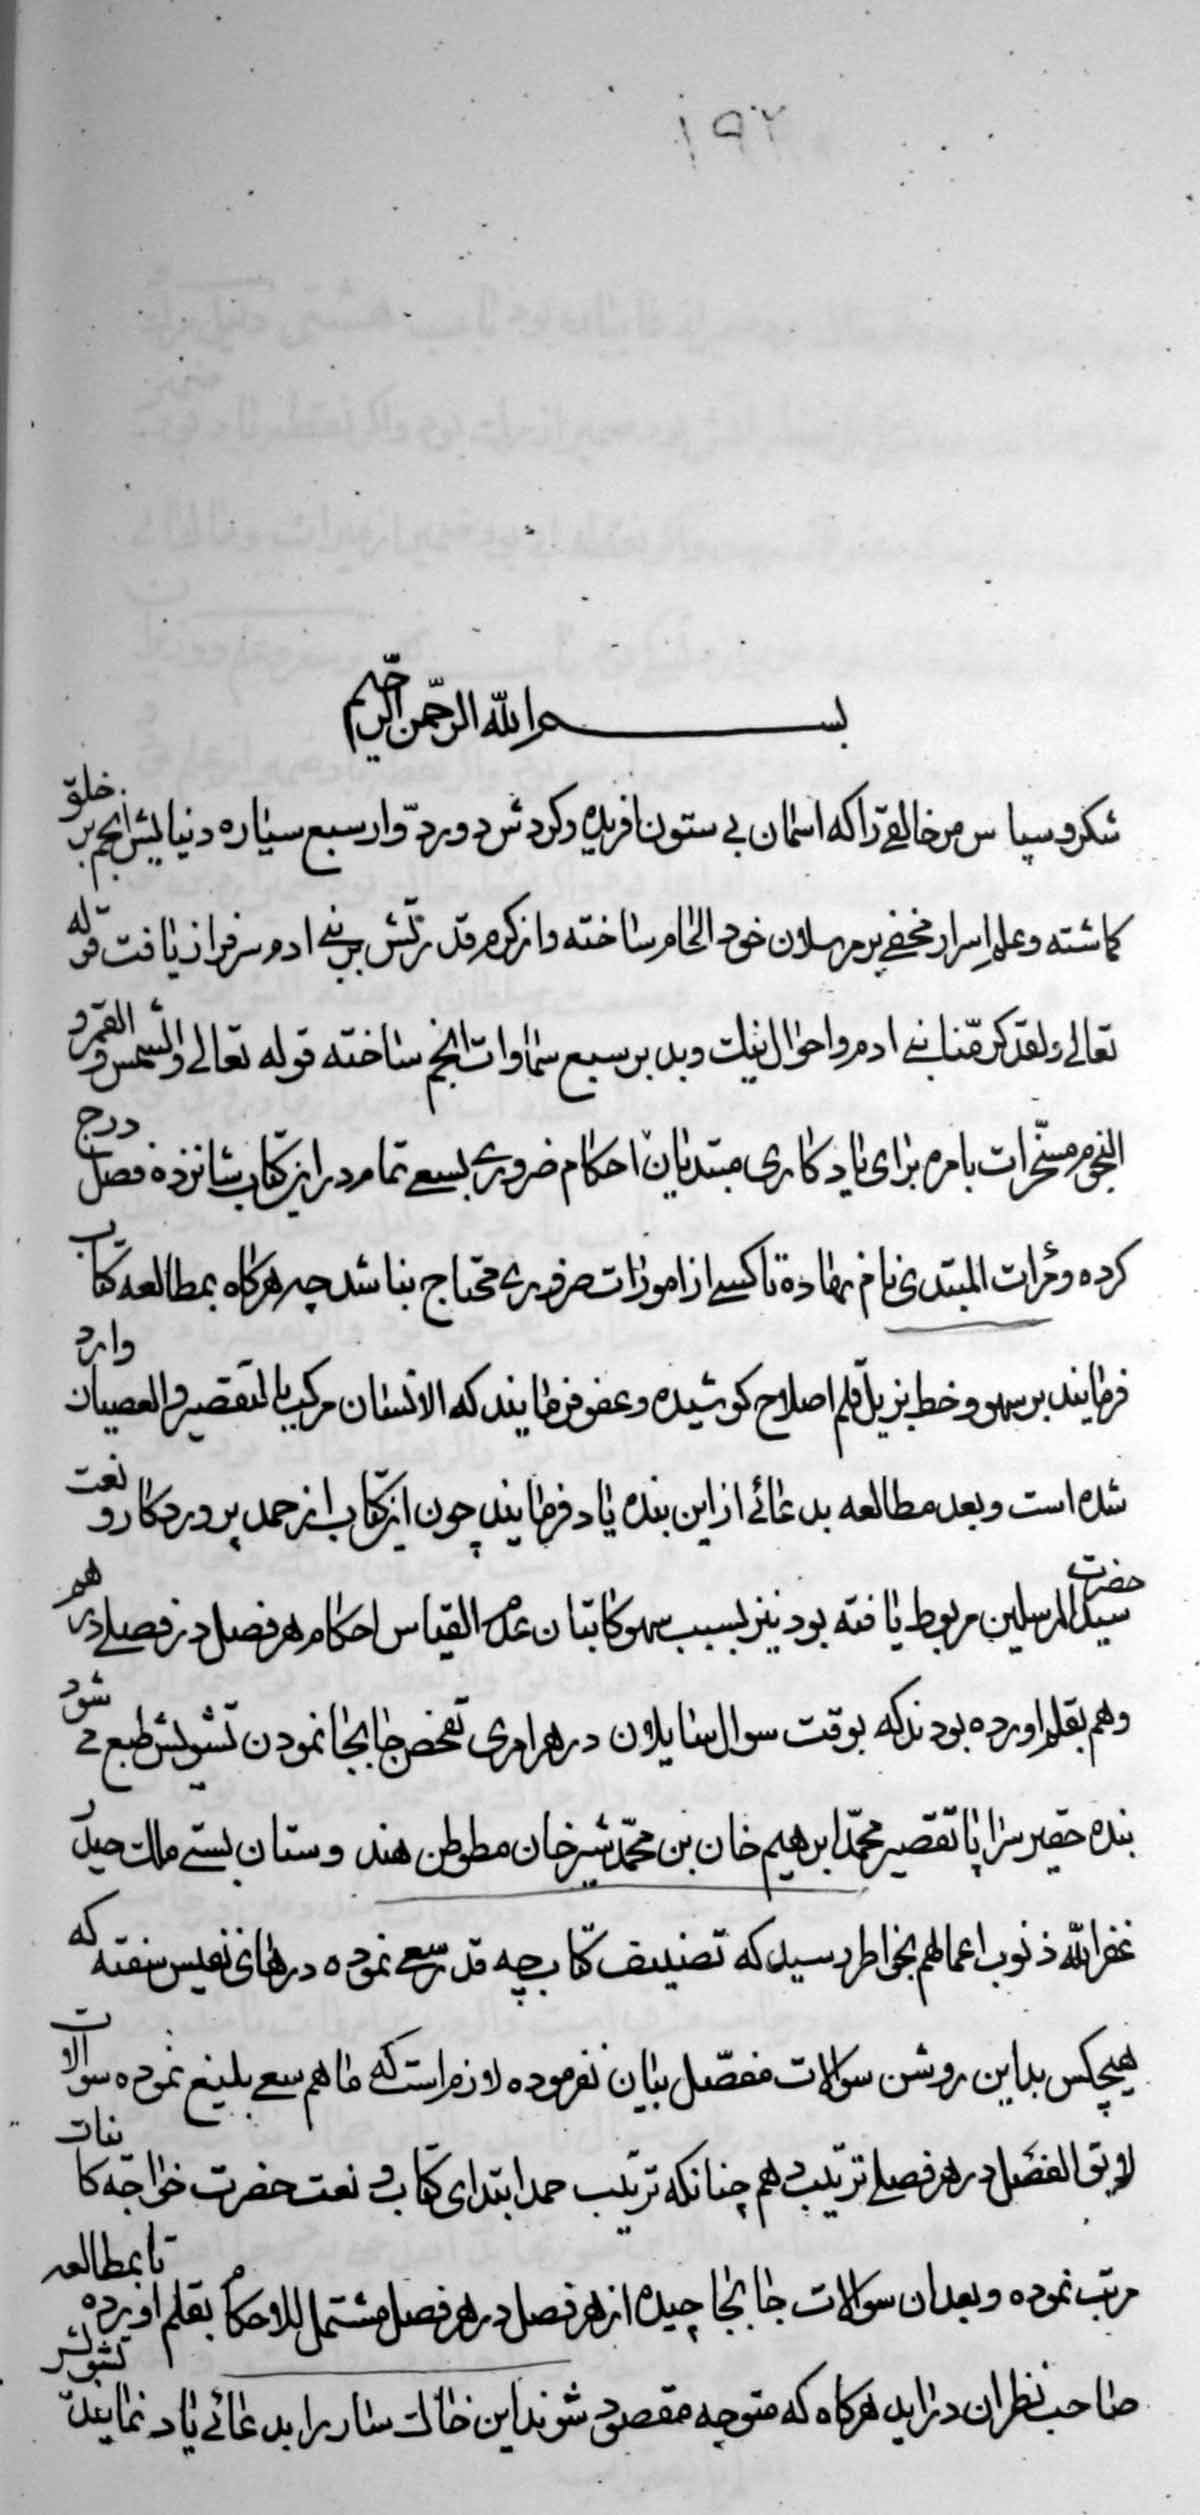 ۱۹۲
بسم الله الرحمن الرحیم
شکر و سپاس مر خالقے را که اسمان بے ستون افریده و کردش دورد وار سبع سیاره دنیا بش انجم بر خلق
کماشته و علم اسرار مخفے بر مرسلان خود الهام ساخته و از کرم قدرتش بر بنے ادم سرفراز یافت قوله
تعالے ولقد کرّمنا بنے ادم و احوال نیک و بد بر سبع سماوات انجم ساخته قوله تعالے والشمس والقمر و
النجوم مسخّرات بامره برای یاد کاری مبتدیان احکام ضرورے بسعے تمام در این کتاب شانزده فصل درج
کرده و مرات المبتدی نام نهاده تا کسے از امورات ضرورے محتاج بنا شد چه هر کاه بمطالعه کتاب
فرمایند بر سهو و خط بزیل قلم اصلاح کوشیده و عفو فرمایند که الانسان مرکب بالتقصیر والعصیان وارد
شده است و بعد مطالعه بدعائے از این بنده یاد فرمایند چون این کتاب از حمد پروردکار و نعت
حضرت سید المرسلین مربوط یافته بود نیز بسبب سهو کاتبان علی القیاس احکام هر فصل در فصلے درهم
و هم بقلم اورده بودند که بوقت سوال سایلان در هر امری تفحص جابجا نمودن تشویش طبع مے شود
بنده حقیر سراپا تقصیر محمّد ابرهیم خان بن محمّد شیر خان مطوطن هندوستان بستے مالت حیدر
غفر الله ذنوب اعمالهم بخواطر رسید که تصنیف کتابچه قدرے سعے نموده درهای نفیس سفته که
هیچکس بداین روشن سوالات مفصّل بیان نفرموده لازم است که ما هم سعے بلیغ نموده سوالات
لایق الفصل در هر فصلے ترتیب دهم چنانکه ترتیب حمد ابتدای کتاب و نعت حضرت خواجه کاینات
مرتب نموده و بعد ان سوالات جا بجا چیده از هر فصل در هر فصل مشتمل للاحکام بقلم اورده تا بمطالعه
صاحب نظران در اید هر کاه که متوجه مقصود شوند این خاک سار را بدعائے یاد نمایند